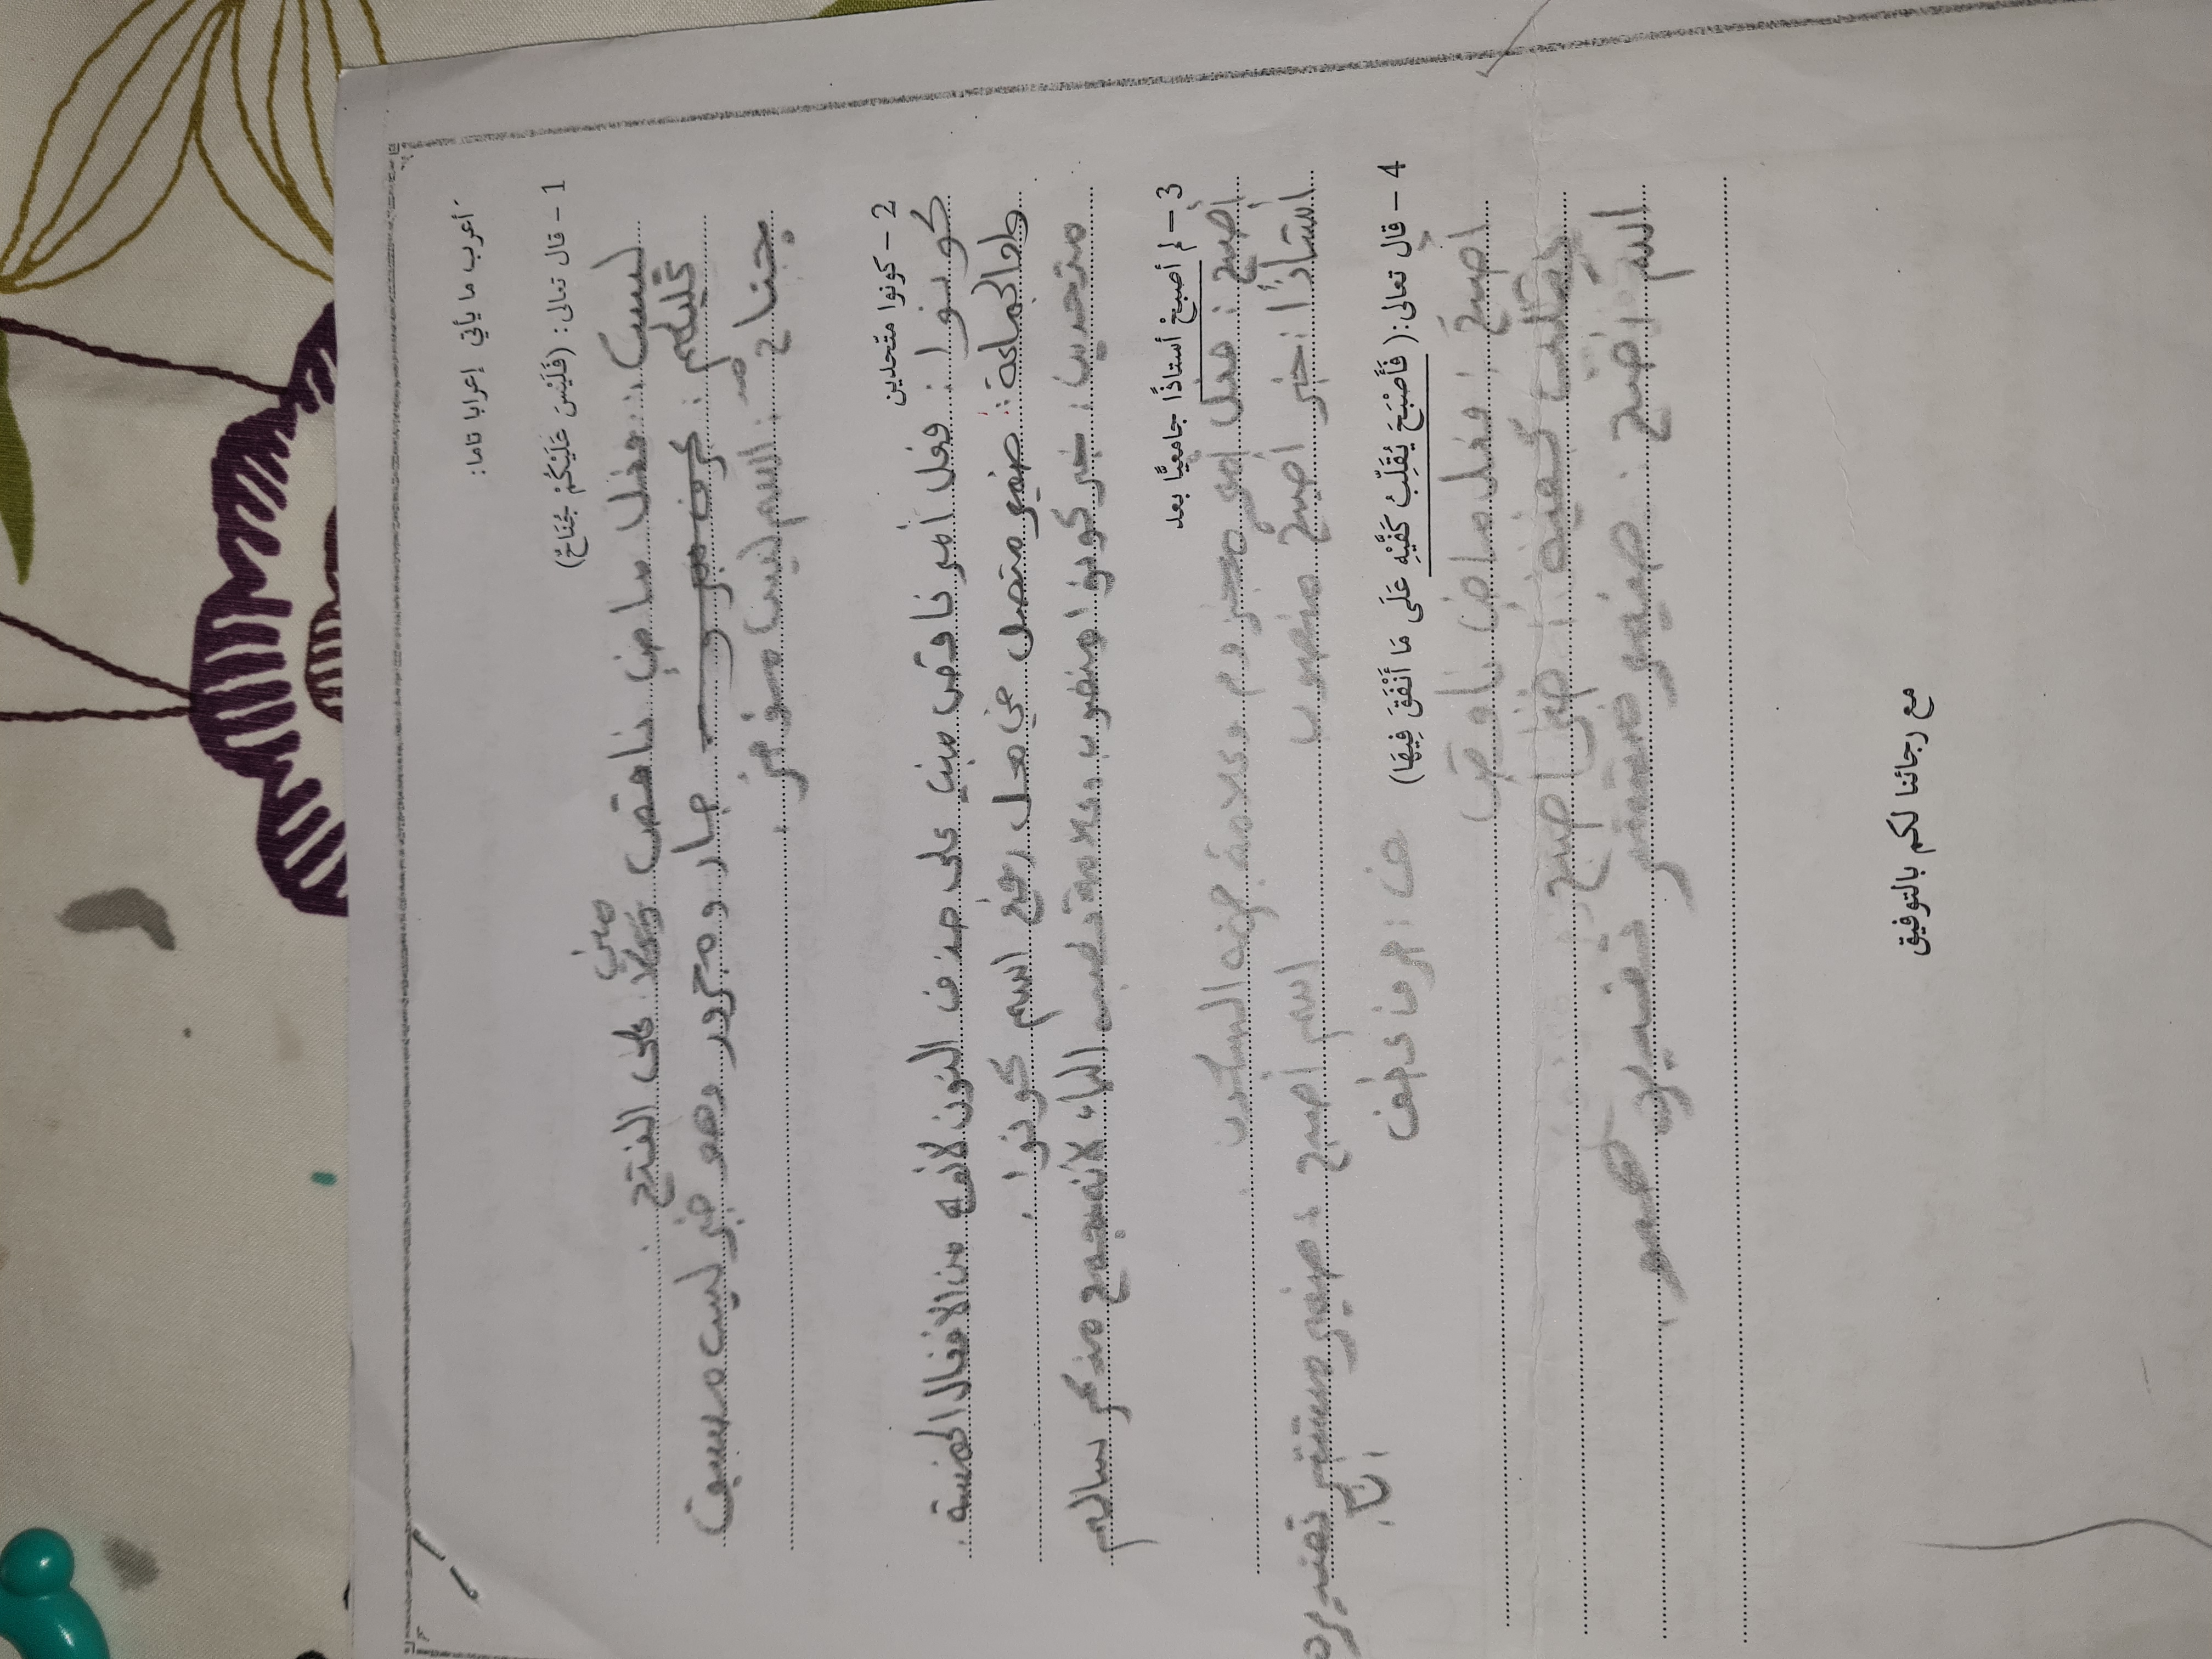 أعرب ما يأتي إعرابا تاما:
1- قال تعالى: (فَلَيْسَ عَلَيْكُمْ جُنَاحٌ)
ليس : فعل ماضي ناقص مبني على الفتح.
عليكم : جار و مجرور وهو خبر ليس مسبق
جناحٌ : اسم ليس مؤخر.
2- كونوا متحدين
كونوا : فعل أمر ناقص مبني على حذف النون لانه من الافعال الخمسة.
واو الجماعة : ضمير متصل في محل رفع اسم كونوا.
متحدين : خبر كونوا منصوب وعلامة نصب الياء لانه جمع مذكر سالم
3- لم أصبحْ أستاذًا جامعيًّا بعد
أصبح : فعل مجزوم وعلامة جزمه السكون.
استاذًا : خبر اصبح منصوب اسم اصبح : ضمير مستتر تقديره
انا.
4- قال تعالى: (فَأَصْبَحَ يُقَلِّبُ كَفَّيْهِ عَلَى مَا أَنْفَقَ فِيهَا) ف : حرف عطف
اصبحَ : فعل ماضي ناقص
يقلب كفيه : خبر اصبح
اسم اصبح : ضمير مستتر تقديره هو.
مع رجائنا لكم بالتوفيق